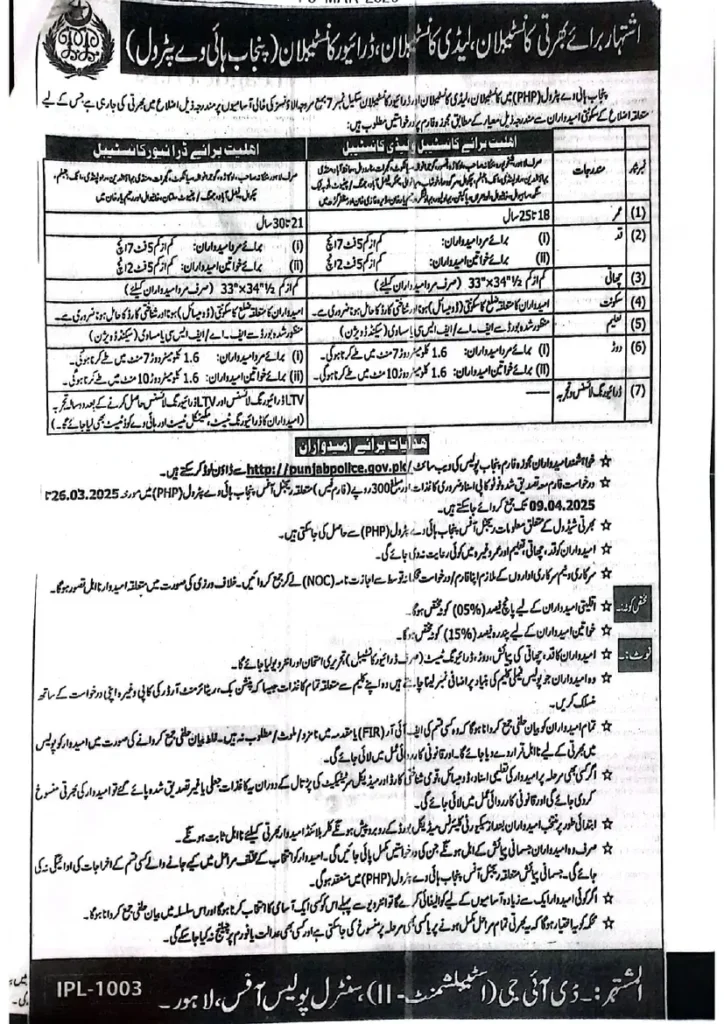 اشتہار برائے بھرتی کانسٹیبلان، لیڈی کانسٹیبلان، ڈرائیور کانسٹیبلان (پنجاب ہائی وے پٹرول)
پنجاب ہائی وے پٹرول (PHP) میں کانسٹیبلان، لیڈی کانسٹیبلان اور ڈرائیور کانسٹیبلان سکیل نمبر 7 بمع مروجہ الاؤنسز کی خالی آسامیوں پر مندرجہ ذیل اضلاع میں بھرتی کی جارہی ہے جس کے لیے
متعلقہ اضلاع کے سکونتی امیدواران سے مندرجہ ذیل معیار کے مطابق مجوزہ فارم پر درخواستیں مطلوب ہیں:
نمبر شمار مندرجات اہلیت برائے کانسٹیبل و لیڈی کانسٹیبل اہلیت برائے ڈرائیور کانسٹیبل
(1) عمر 18 تا 25 سال 21 تا 30 سال
(2) قد (i) برائے مرد امیدواران: کم از کم 5 فٹ 7 انچ (i) برائے مرد امیدواران: کم از کم 5 فٹ 7 انچ
(ii) برائے خواتین امیدواران: کم از کم 5 فٹ 2 انچ (ii) برائے خواتین امیدواران: کم از کم 5 فٹ 2 انچ
(3) چھاتی کم از کم 33"×34"½ (صرف مرد امیدواران کیلئے) کم از کم 33"×34"½ (صرف مرد امیدواران کیلئے)
(4) سکونت امیدواران کا متعلقہ ضلع کا سکونتی (ڈومیسائل) ہونا اور شناختی کارڈ کا حامل ہونا ضروری ہے۔ امیدواران کا متعلقہ ضلع کا سکونتی (ڈومیسائل) ہونا اور شناختی کارڈ کا حامل ہونا ضروری ہے۔
(5) تعلیم منظور شدہ بورڈ سے ایف۔اے/ایف ایس سی یا مساوی (سیکنڈ ڈویژن) منظور شدہ بورڈ سے ایف۔اے/ایف ایس سی یا مساوی (سیکنڈ ڈویژن)
(6) دوڑ (i) برائے مرد امیدواران: 1.6 کلومیٹر دوڑ 7 منٹ میں طے کرنا ہوگی۔ (i) برائے مرد امیدواران: 1.6 کلومیٹر دوڑ 7 منٹ میں طے کرنا ہوگی۔
(II) برائے خواتین امیدواران: 1.6 کلومیٹر دوڑ 10 منٹ میں طے کرنا ہوگی۔ (ii) برائے خواتین امیدواران: 1.6 کلومیٹر دوڑ 10 منٹ میں طے کرنا ہوگی۔
(7) ڈرائیونگ لائسنس و تجربہ —— LTV ڈرائیونگ لائسنس اور LTV ڈرائیونگ لائسنس حاصل کرنے کے بعد دو سالہ تجربہ
(امیدواران کا ڈرائیونگ ٹیسٹ، مکینیکل ٹیسٹ اور ہائی وے کوڈ ٹیسٹ بھی لیا جائے گا۔)
ھدایات برائے امیدواران
☆ خواہشمند امیدواران مجوزہ فارم پنجاب پولیس کی ویب سائٹ http://punjabpolice.gov.pk/ سے ڈاؤن لوڈ کرسکتے ہیں۔
☆ درخواست فارم مع تصدیق شدہ فوٹو کاپی اسناد ضروری کاغذات اور مبلغ 300 روپے (فارم فیس) متعلقہ ریجنل آفس پنجاب ہائی وے پٹرول (PHP) میں مورخہ 26.03.2025 تا
09.04.2025 تک جمع کروائے جاسکتے ہیں۔
☆ بھرتی شیڈول کے متعلق معلومات ریجنل آفس پنجاب ہائی وے پٹرول (PHP) سے حاصل کی جاسکتی ہیں۔
☆ امیدواران کو قد، چھاتی، تعلیم اور عمر وغیرہ میں کوئی رعایت نہ دی جائے گی۔
☆ سرکاری و نیم سرکاری اداروں کے ملازم اپنا فارم اور درخواست محکمانہ توسط سے اجازت نامہ (NOC) لے کر جمع کروائیں۔ خلاف ورزی کی صورت میں متعلقہ امیدوار نااہل تصور ہوگا۔
مختص کوٹہ:۔ ☆ اقلیتی امیدواران کے لیے پانچ فیصد (05%) کوٹہ مختص ہوگا۔
☆ خواتین امیدواران کے لیے پندرہ فیصد (15%) کوٹہ مختص ہوگا۔
نوٹ:۔ ☆ امیدواران کا قد، چھاتی کی پیمائش، دوڑ، ڈرائیونگ ٹیسٹ (صرف ڈرائیور کانسٹیبل) تحریری امتحان اور انٹرویو لیا جائے گا۔
☆ وہ امیدواران جو پولیس فیملی کلیم کی بنیاد پر اضافی نمبر لینا چاہتے ہیں وہ اپنے کلیم سے متعلق تمام کاغذات جیسا کہ پنشن بک، ریٹائرمنٹ آرڈر کی کاپی وغیرہ اپنی درخواست کے ساتھ
منسلک کریں۔
☆ تمام امیدواران کو بیان حلفی جمع کروانا ہوگا کہ وہ کسی قسم کی ایف آئی آر (FIR) یا مقدمہ میں نامزد/ملوث/مطلوب نہ ہیں۔ غلط بیان حلفی جمع کروانے کی صورت میں امیدوار کو پولیس
میں بھرتی کے لیے نااہل قرار دے دیا جائے گا۔ اور قانونی کارروائی عمل میں لائی جائے گی۔
☆ اگر کسی بھی مرحلہ پر امیدوار کی تعلیمی اسناد، ڈومیسائل، قومی شناختی کارڈ اور میڈیکل سرٹیفکیٹ کی پڑتال کے دوران یہ کاغذات جعلی یا غیر تصدیق شدہ پائے گئے تو امیدوار کی بھرتی منسوخ
کردی جائے گی اور قانونی کارروائی عمل میں لائی جائے گی۔
☆ ابتدائی طور پر منتخب امیدواران بعد از سکیورٹی کلیئرنس میڈیکل بورڈ کے روبرو پیش ہونگے کلر بلائنڈ امیدوار بھرتی کیلئے نااہل ثابت ہونگے۔
☆ صرف وہ امیدواران جسمانی پیمائش کے اہل ہونگے جن کی درخواستیں مکمل پائی جائیں گی۔ امیدوار کو انتخاب کے مختلف مراحل میں کیے جانے والے کسی قسم کے اخراجات کی ادائیگی نہ کی
جائے گی۔ جسمانی پیمائش متعلقہ ریجنل آفس پنجاب ہائی وے پٹرول (PHP) میں منعقد ہوگی۔
☆ اگر کوئی امیدوار ایک سے زیادہ آسامیوں کے لیے کوالیفائی کرے گا تو انٹرویو سے پہلے اس کو کسی ایک آسامی کا انتخاب کرنا ہوگا اور اس سلسلہ میں بیان حلفی جمع کروانا ہوگا۔
☆ محکمہ کو یہ اختیار ہوگا کہ یہ بھرتی تمام مراحل مکمل ہونے پر یا کسی بھی مرحلہ پر منسوخ کی جاسکتی ہے اور کسی بھی عدالت یا فورم پر چیلنج نہ کیا جاسکے گی۔
المشتہر:۔ ڈی آئی جی (اسٹیبلشمنٹ-II)، سنٹرل پولیس آفس، لاہور۔
IPL-1003